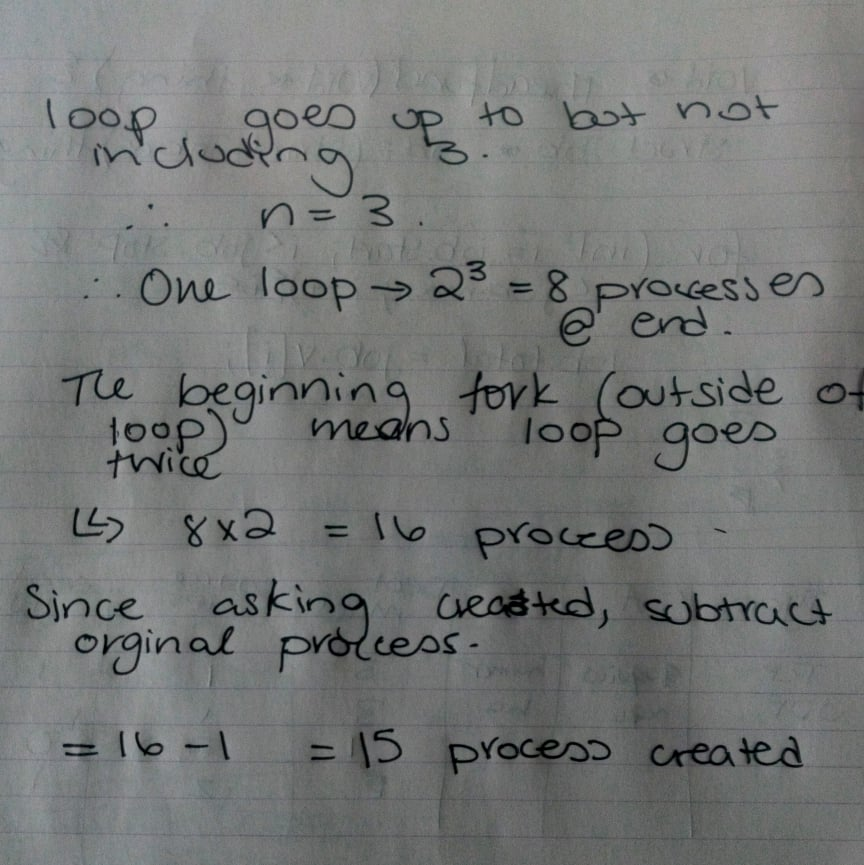 loop goes up to but not
including 3.
∴ n = 3.
∴ One loop → 2³ = 8 processes
@ end.
The beginning fork (outside of
loop) means loop goes
twice
↳ 8x2 = 16 process
Since asking created, subtract
orginal process.
= 16 - 1 = 15 process created